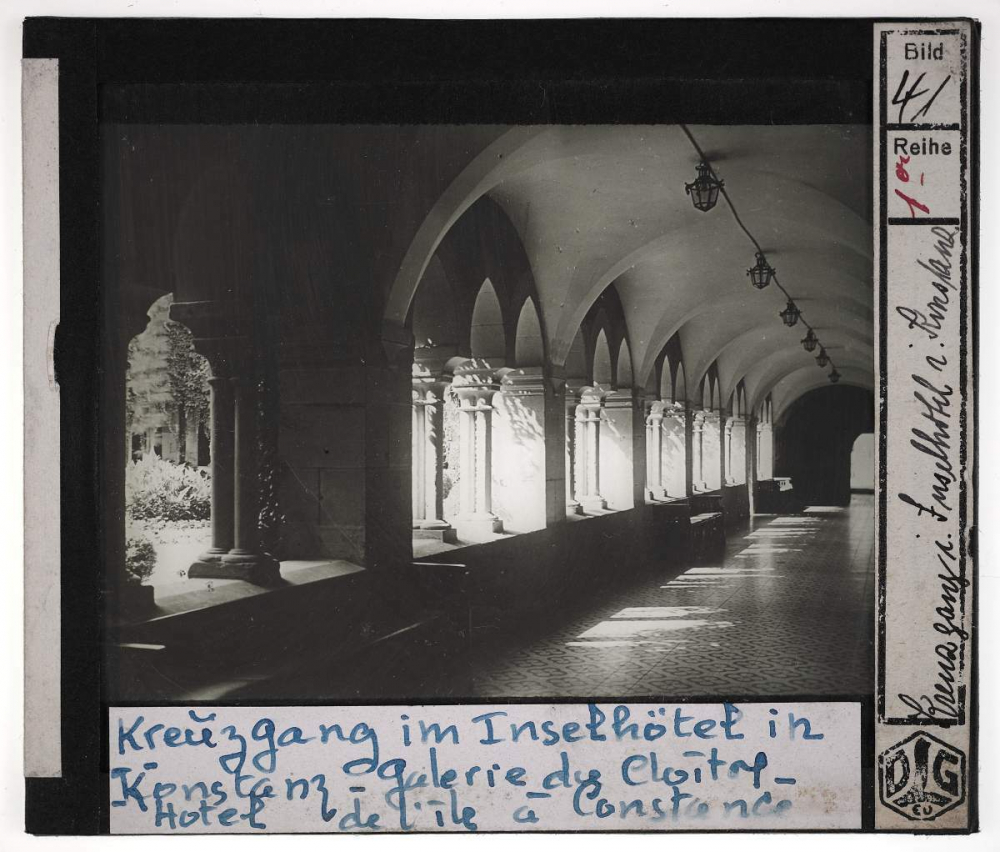 Bild
41
Reihe
1er
Kreuzgang i. Inselhotel i. Konstanz
DLG
EU
Kreŭzgang im Inselhötel in
Konstanz - Galerie du Cloître -
Hotel de l'île à Constance